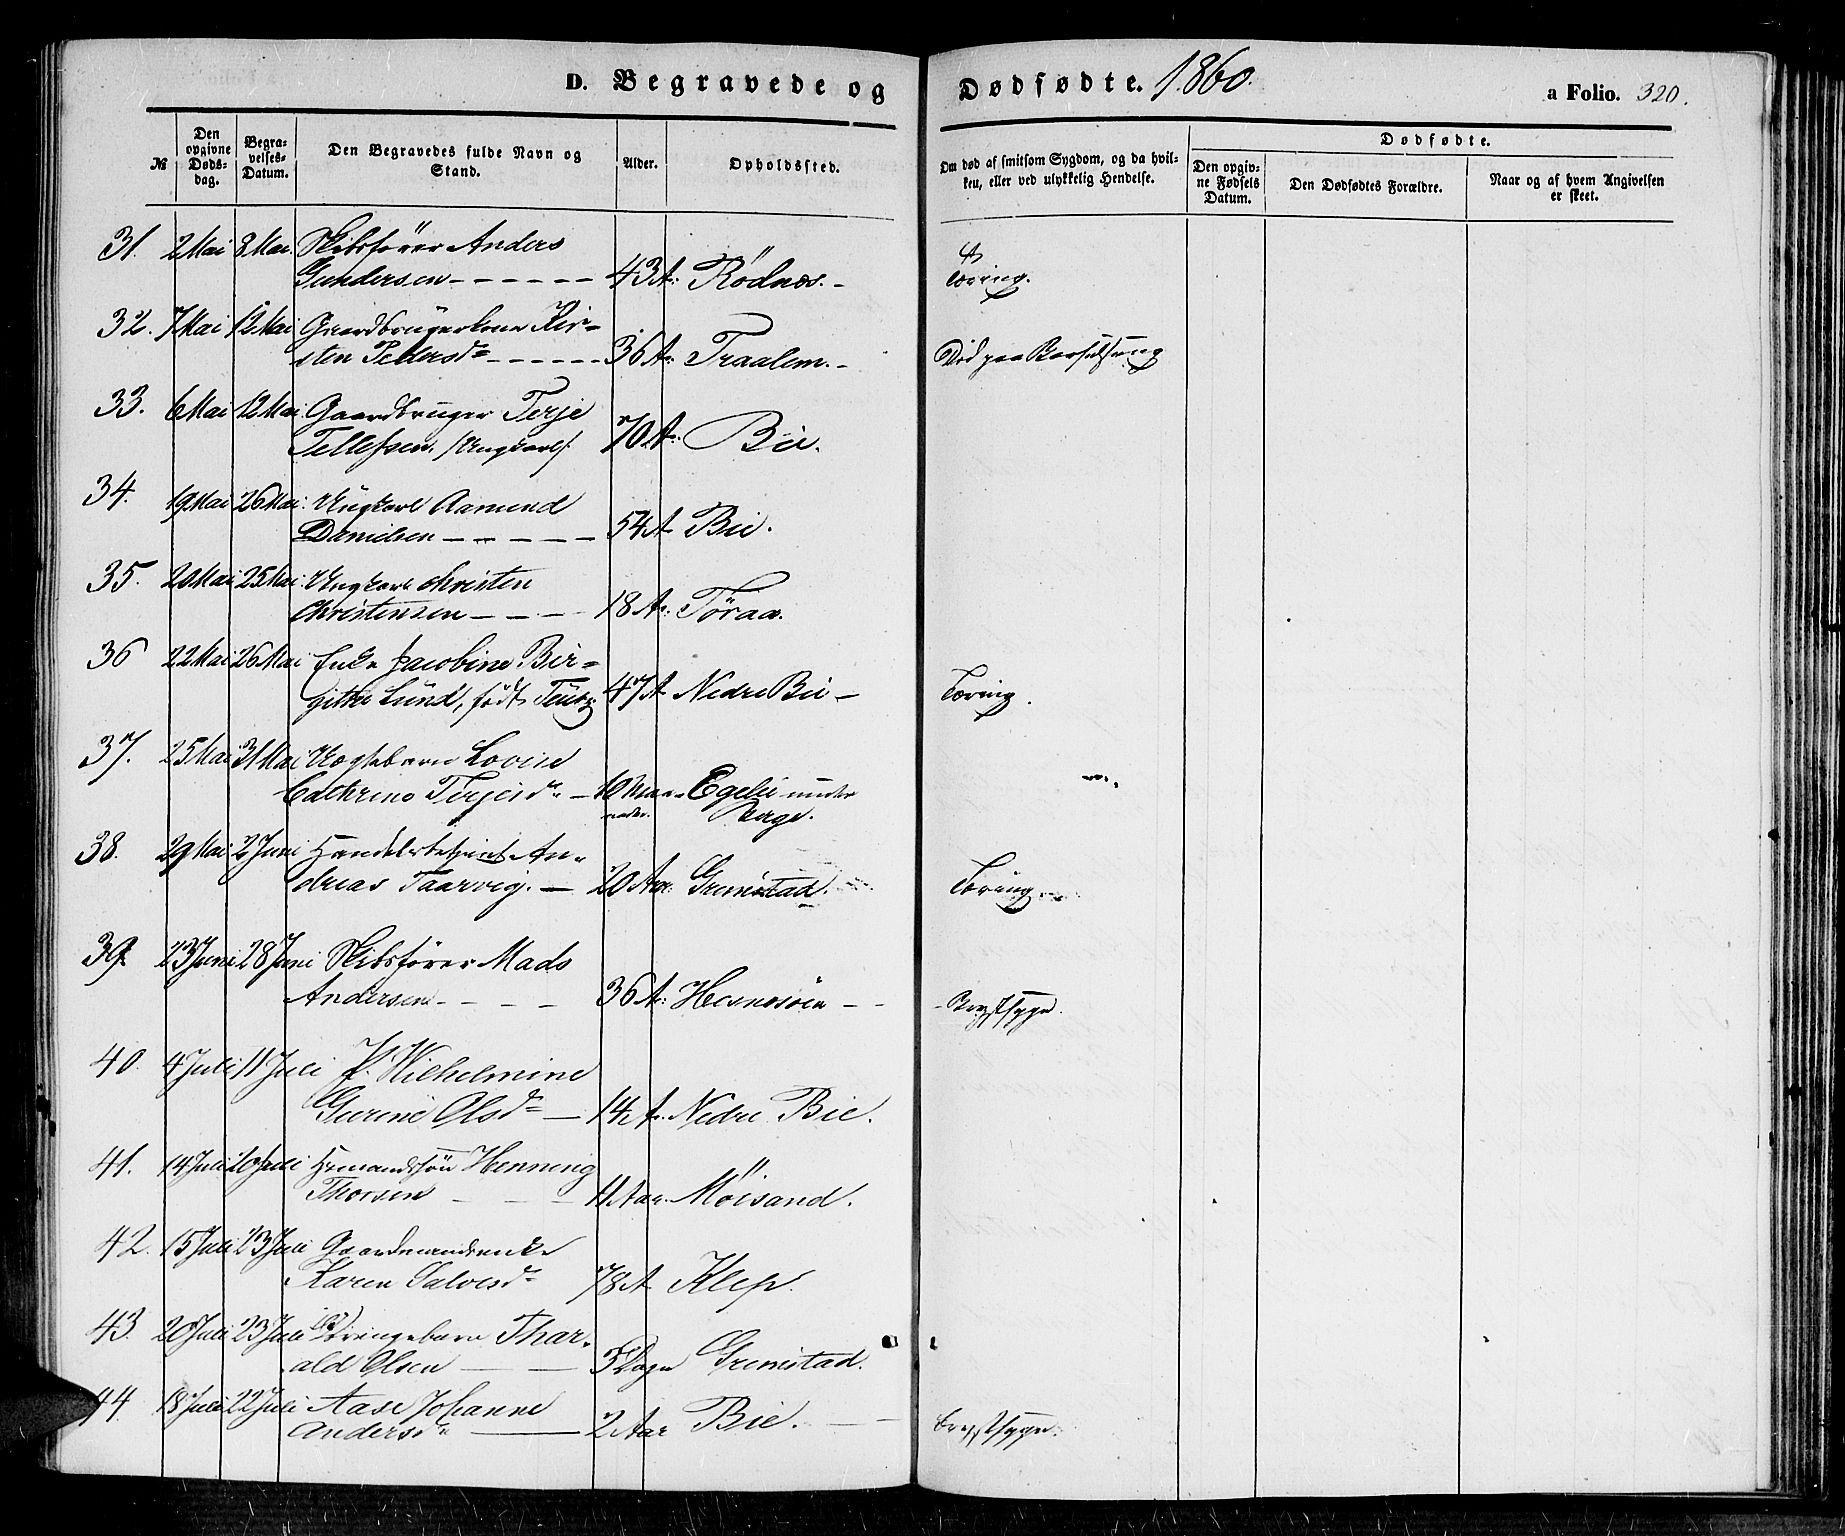 D. Begravede og Dødfødte. 1860.
a Folio. 320.
№
Den opgivne Døds-dag.
Begra-velses-Datum.
Den Begravedes fulde Navn og Stand.
Alder.
Opholdssted.
Om død af smitsom Sygdom, og da hvil-ken, eller ved ulykkelig Hendelse.
Dødfødte.
Den opgiv-ne Fødsels Datum.
Den Dødfødtes Forældre.
Naar og af hvem Angivelsen er skeet.
31. 2 Mai 8 Mai. Skibsfører Anders
Gundersen - - - - - - 43 A: Rödnæs. - Tæring.
32. 7 Mai 12 Mai Gaardbrugerkone Kir=
sten Pedersd - - - - - - 36 A: Traalem. - Död paa Barselseng
33. 6 Mai 12 Mai Gaardbruger Terje
Tellefsen. /Ungkarl/. 70 A: Bie.
34. 19 Mai 26 Mai: Ungkarl Aamund
Danielsen - - - - - - 54 A Bie.
35. 20 Mai 25 Mai: Ungkarl Christen
Christensen - - - - 18 A: Töraa.
36 22 Mai 26 Mai Enke Jacobine Bir=
githe Lund, födt 47 A Nedre Bie - Tæring.
37. 25 Mai 31 Mai Lovise
Cathrine Terjesd - 10 Maa- Egelie under
neder. Berge.
38. 29 Mai 2 Juni Handelsbetjent An=
dreas Taarvig. - 20 Aar: Grimstad. Tæring.
39. 23 Juni 28 Juni Skibsfører Mads
Andersen - - - - 36 A: Hesnesöen - - Brystsyge.
40. 4 Juli 11 Juli P. Wilhelmine
Gurine Olsd - 14 A. Nedre Bie.
41. 14 Juli 20 Juli Henning
Thorsen - - - 11 Aar. Möisand.
42. 15 Juli 23 Juli Gaardmandsenke
Karen Salvesd 78 A Klep.
43. 20 Juli 23 Juli Drengebarn Thar=
ald Olsen - - 5 Dage Grimstad.
44. 18 Juli 22 Juli Aase Johanne
Andersd - 2 Aar Bie. - - Brystsyge.